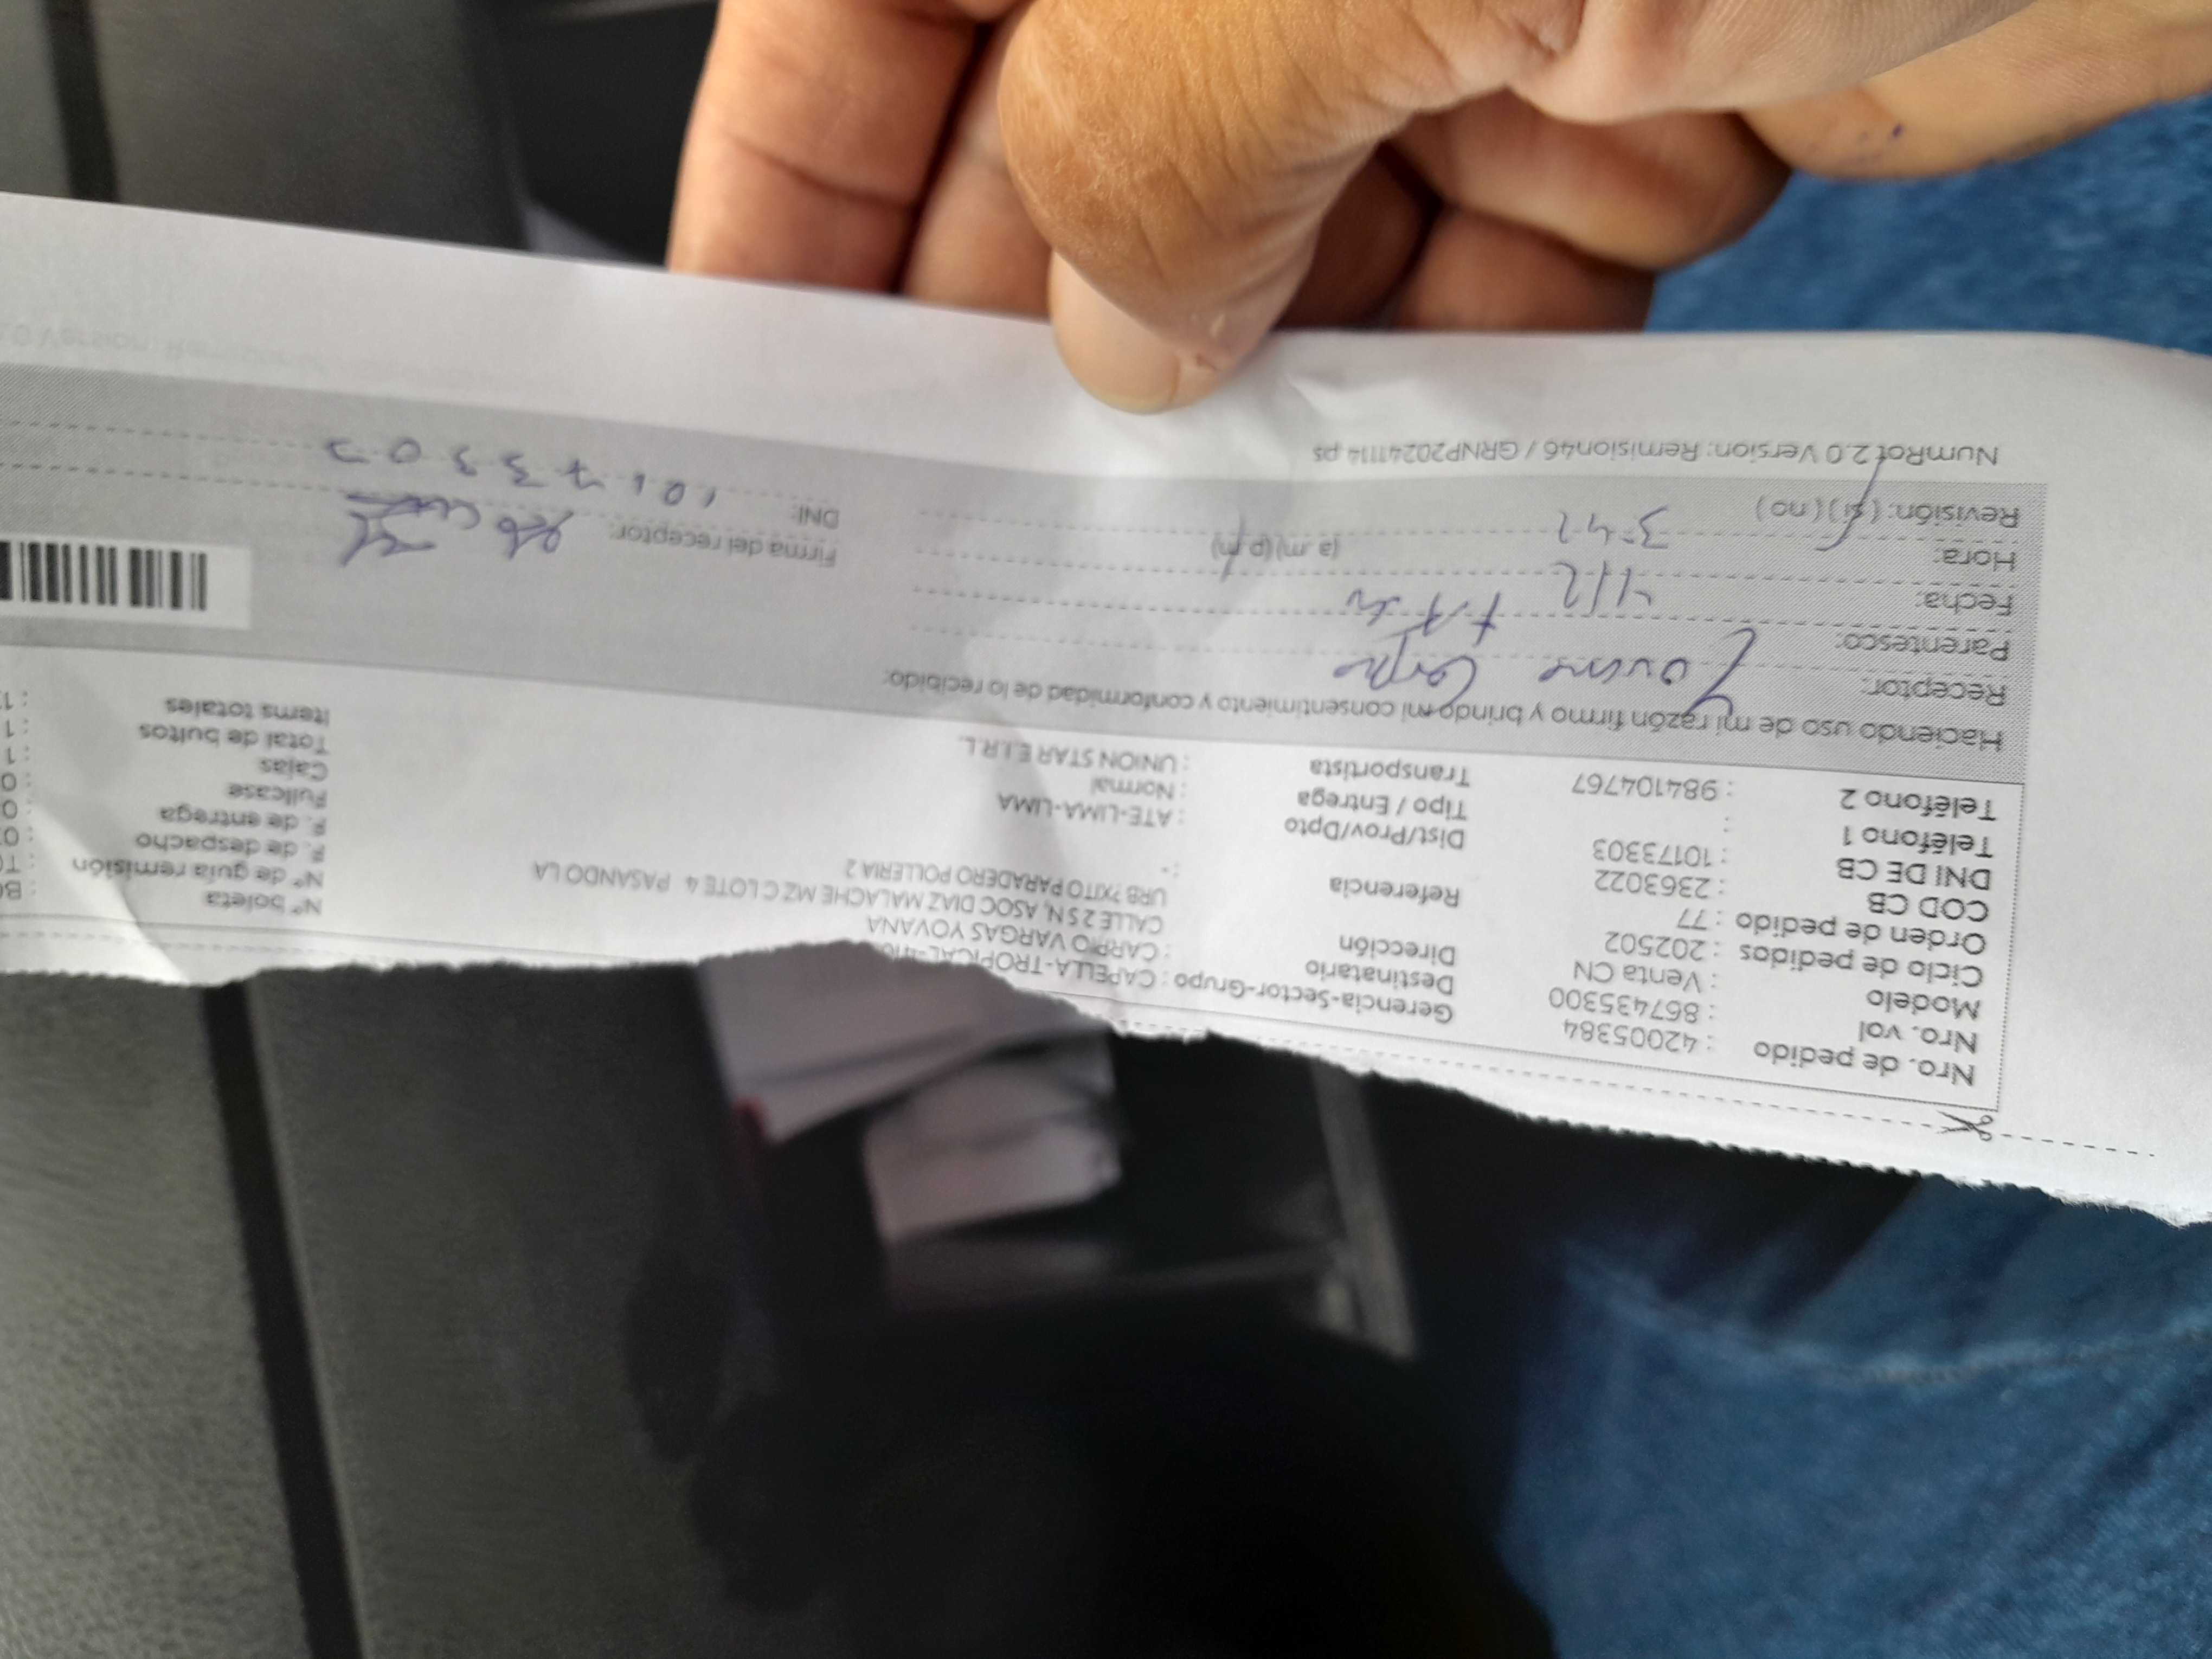 Nro. de pedido : 42005384
Nro. vol : 867435300
Modelo : Venta CN
Ciclo de pedidos : 202502
Orden de pedido : 77
COD CB : 2363022
DNI DE CB : 10173303
Teléfono 1 :
Teléfono 2 : 984104767
Gerencia-Sector-Grupo : CAPELLA-TROPICAL-
Destinatario : CARPIO VARGAS YOVANA
Dirección CALLE 2 S N, ASOC DIAZ MALACHE MZ C LOTE 4 PASANDO LA
URB ?XITO PARADERO POLLERIA 2
Referencia : -
Dist/Prov/Dpto : ATE-LIMA-LIMA
Tipo / Entrega : Normal
Transportista : UNION STAR E.I.R.L.
Nº boleta
Nº de guía remisión
F. de despacho
F. de entrega
Fullcase
Cajas : 1
Total de bultos : 1
Items totales
Haciendo uso de mi razón firmo y brindo mi consentimiento y conformidad de lo recibido:
Receptor: Yovana Carpio
Parentesco:
Fecha: 4/2
Hora: 3:42 (a m)(p m)
Revisión: (si)(no)
Firma del receptor:
DNI: 10173303
NumRot 2.0 Version: Remision46 / GRNP20241114 ps